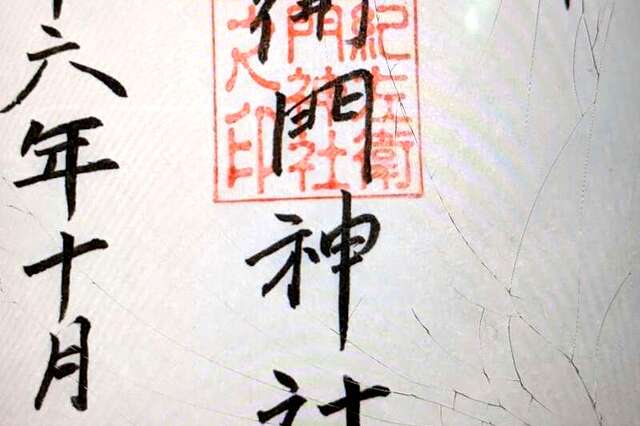 衛門神社
紀左衛
門神社
之印
六年十月